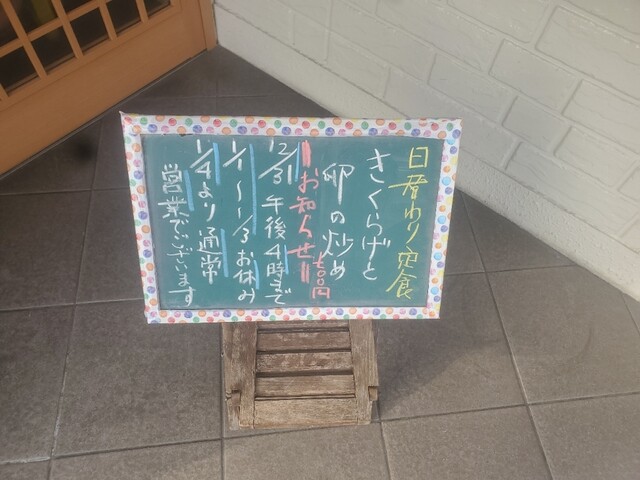 日替わり定食
きくらげと
卵の炒め
七〇〇円
=お知らせ=
12/31 午後4時まで
1/1〜1/3お休み
1/4より通常
営業でございます